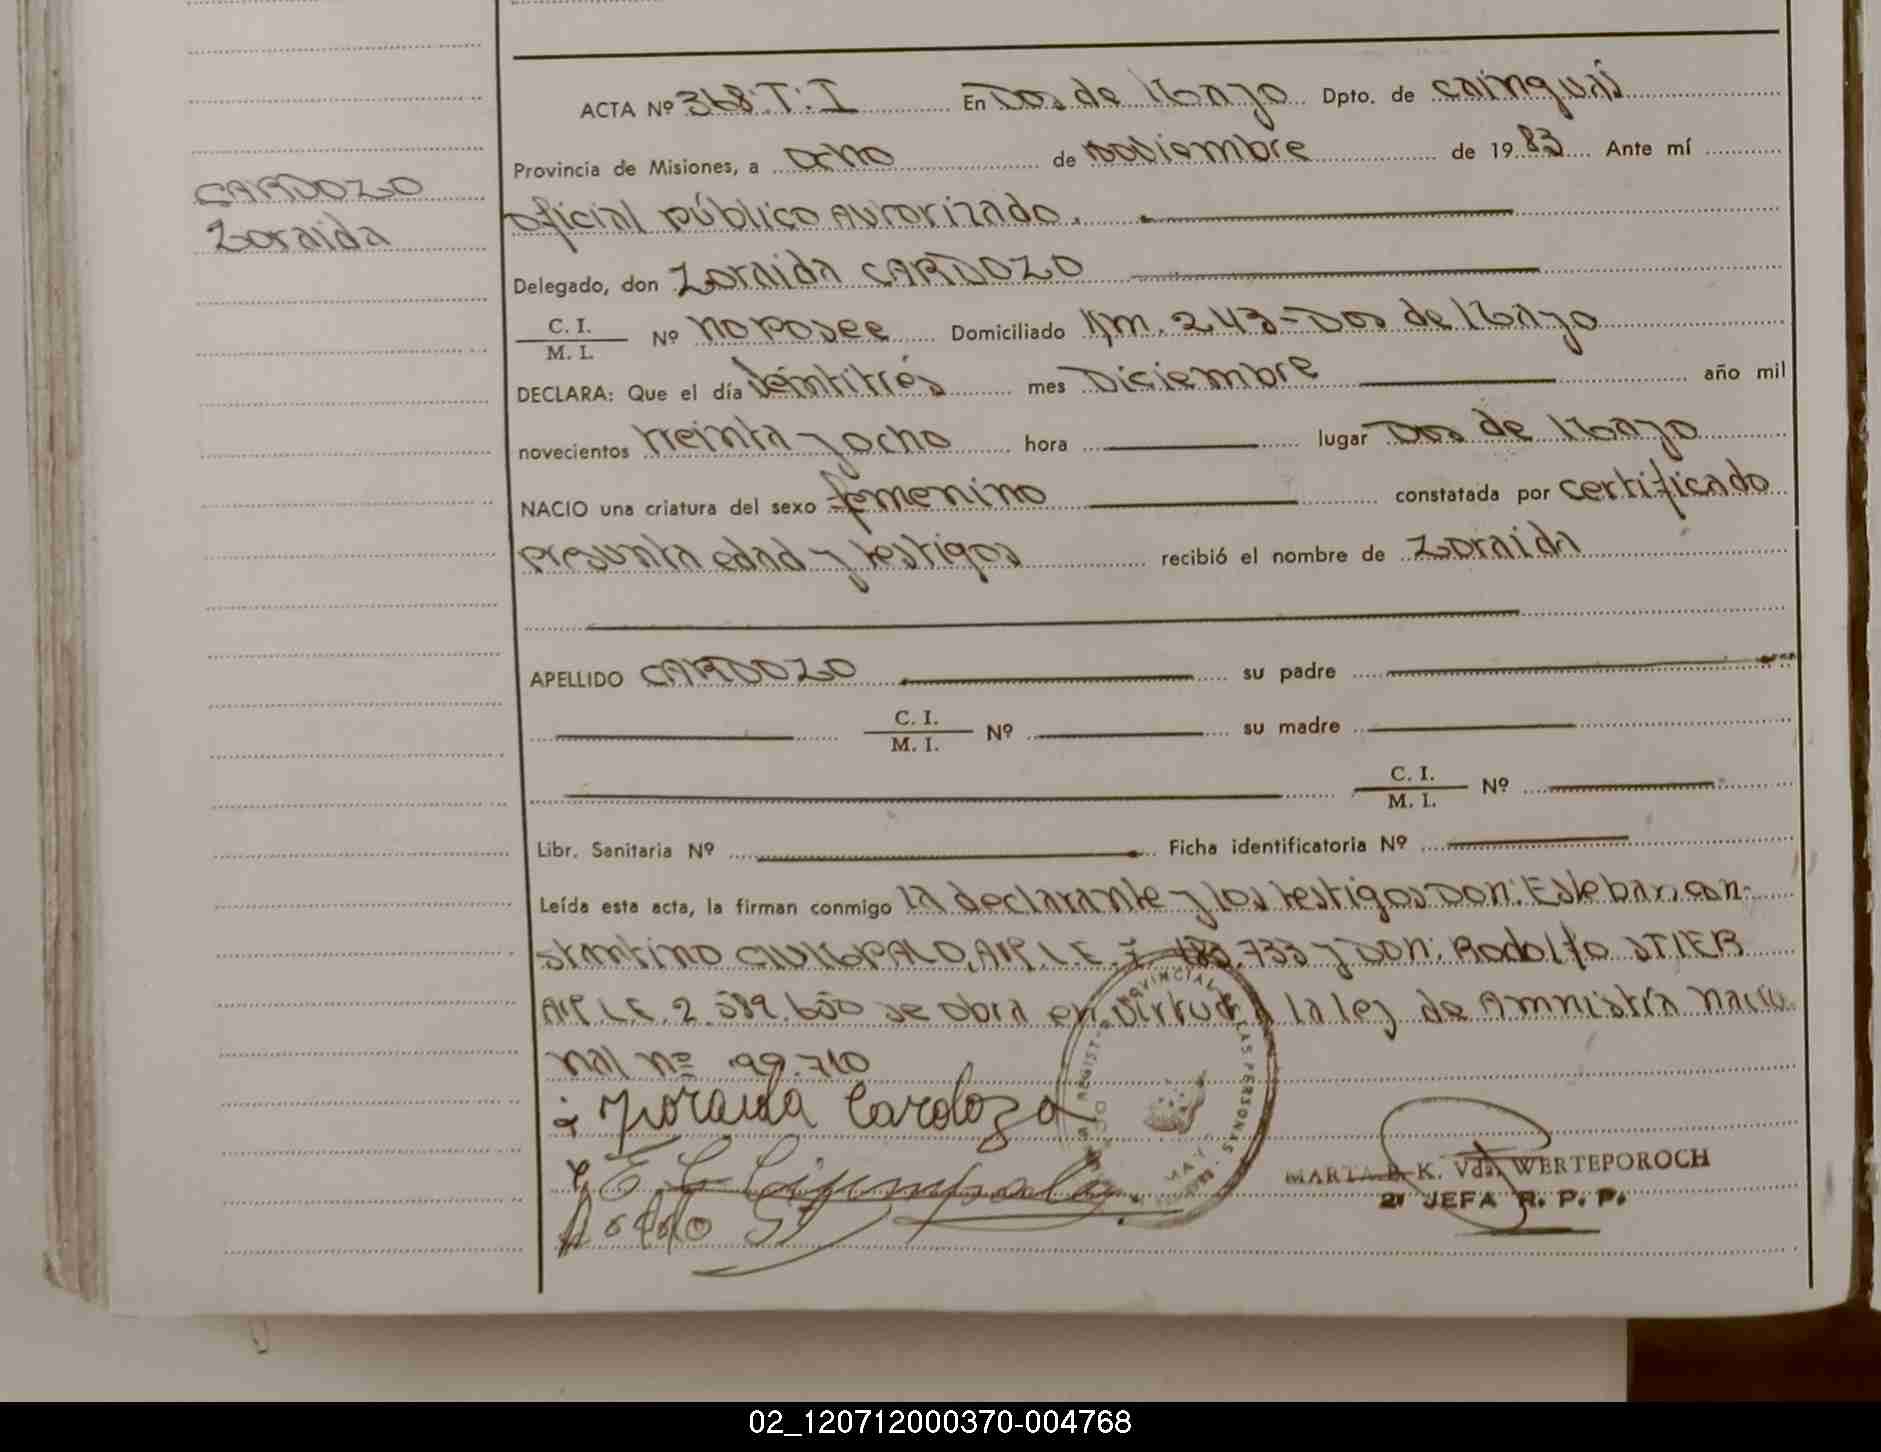 ACTA Nº 368.T.I En Dos de Mayo Dpto. de cainguás
Provincia de Misiones, a ocho de noviembre de 1983 Ante mí
CARDOZO
Zoraida
oficial público Autorizado.
Delegado, don Zoraida CARDOZO
C. I.
M. I. Nº no posee Domiciliado Km. 243-Dos de Mayo
DECLARA: Que el día Veintitrés mes Diciembre año mil
novecientos treinta y ocho hora lugar Dos de Mayo
NACIO una criatura del sexo femenino constatada por certificado
presunta edad y testigos recibió el nombre de Zoraida
APELLIDO CARDOZO su padre
C. I.
M. I. Nº su madre
C. I.
M. I. Nº
Libr. Sanitaria Nº Ficha identificatoria Nº
Leída esta acta, la firman conmigo la declarante y los testigos Don: Esteban, con-
stantino L.E. 7. 733 y Don: Rodolfo STIER
L.E. 2.589.650 se obra en virtud a la ley de Amnistía Nacio
nal nº 22.710
Zoraida Cardozo
MARTA K. Vda. WERTEPOROCH
2ª JEFA R. P. P.
02_120712000370-004768